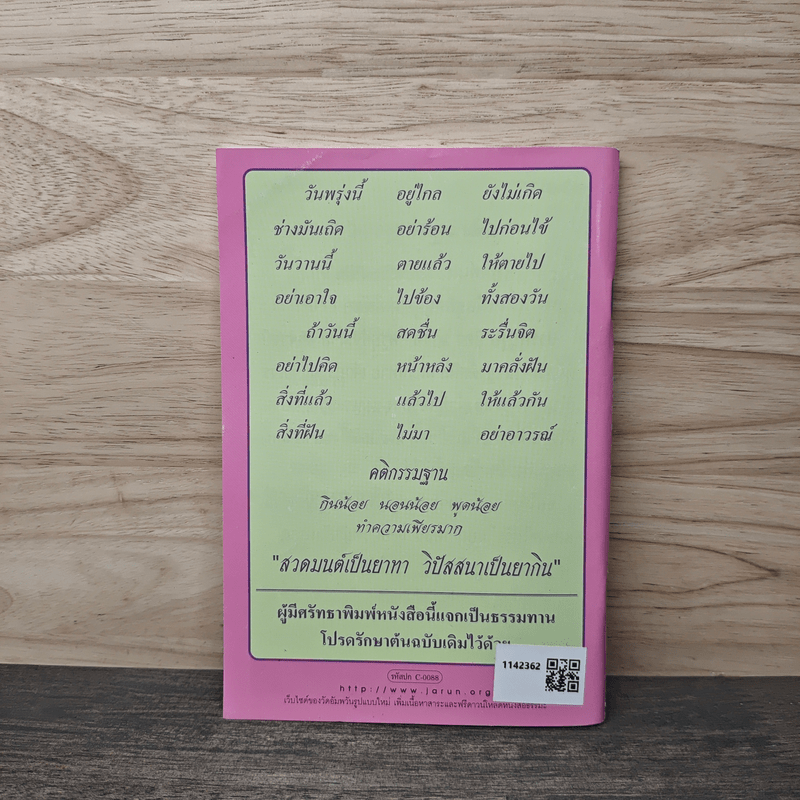 วันพรุ่งนี้ อยู่ไกล ยังไม่เกิด
ช่างมันเถิด อย่าร้อน ไปก่อนไข้
วันวานนี้ ตายแล้ว ให้ตายไป
อย่าเอาใจ ไปข้อง ทั้งสองวัน
ถ้าวันนี้ สดชื่น ระรื่นจิต
อย่าไปคิด หน้าหลัง มาคลั่งฝัน
สิ่งที่แล้ว แล้วไป ให้แล้วกัน
สิ่งที่ฝัน ไม่มา อย่าอาวรณ์
คติกรรมฐาน
กินน้อย นอนน้อย พูดน้อย
ทำความเพียรมาก
"สวดมนต์เป็นยาทา วิปัสสนาเป็นยากิน"
ผู้มีศรัทธาพิมพ์หนังสือนี้แจกเป็นธรรมทาน
โปรดรักษาต้นฉบับเดิมไว้ด้วย
1142362
รหัสปก C-0088
http://www.jarun.org
เว็บไซต์ของวัดอัมพวันรูปแบบใหม่ เพิ่มเนื้อหาสาระและฟรีดาวน์โหลดหนังสือธรรมะ